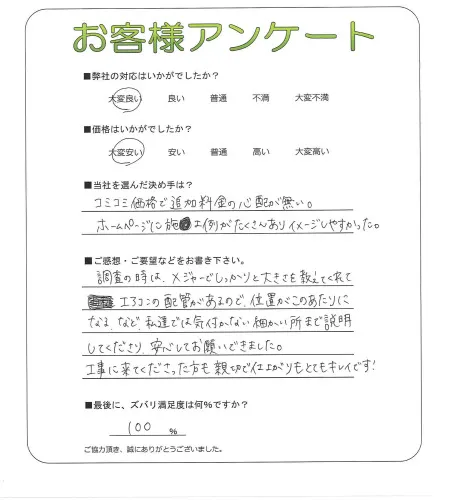 お客様アンケート
■弊社の対応はいかがでしたか?
大変良い 良い 普通 不満 大変不満
■価格はいかがでしたか?
大変安い 安い 普通 高い 大変高い
■当社を選んだ決め手は?
コミコミ価格で追加料金の心配が無い。
ホームページに施工例がたくさんありイメージしやすかった。
■ご感想・ご要望などをお書き下さい。
調査の時は、メジャーでしっかりと大きさを教えてくれて
エコキュートの配管があるので、位置がこのあたりに
なる、など、私達では気付かない細かい所まで説明
してくださり、安心してお願いできました。
工事に来てくださった方も親切で仕上がりもとてもキレイです!
■最後に、ズバリ満足度は何%ですか?
100 %
ご協力頂き、誠にありがとうございました。